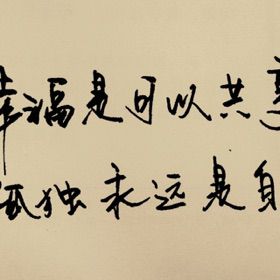 幸福是可以共享
孤独永远是自